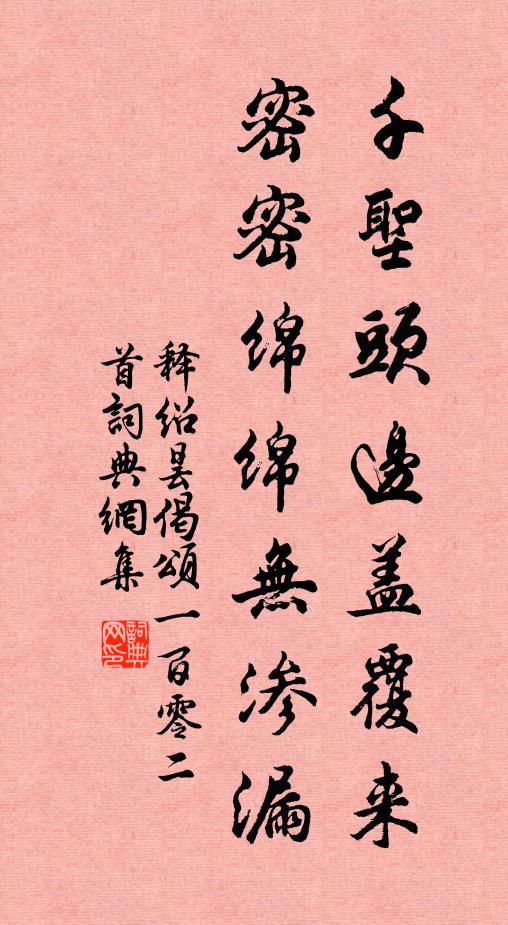 千聖頭邊盖覆来
密密绵绵無渗漏
释绍昙偈頌一百零二
首詞典網集
詞典
网印